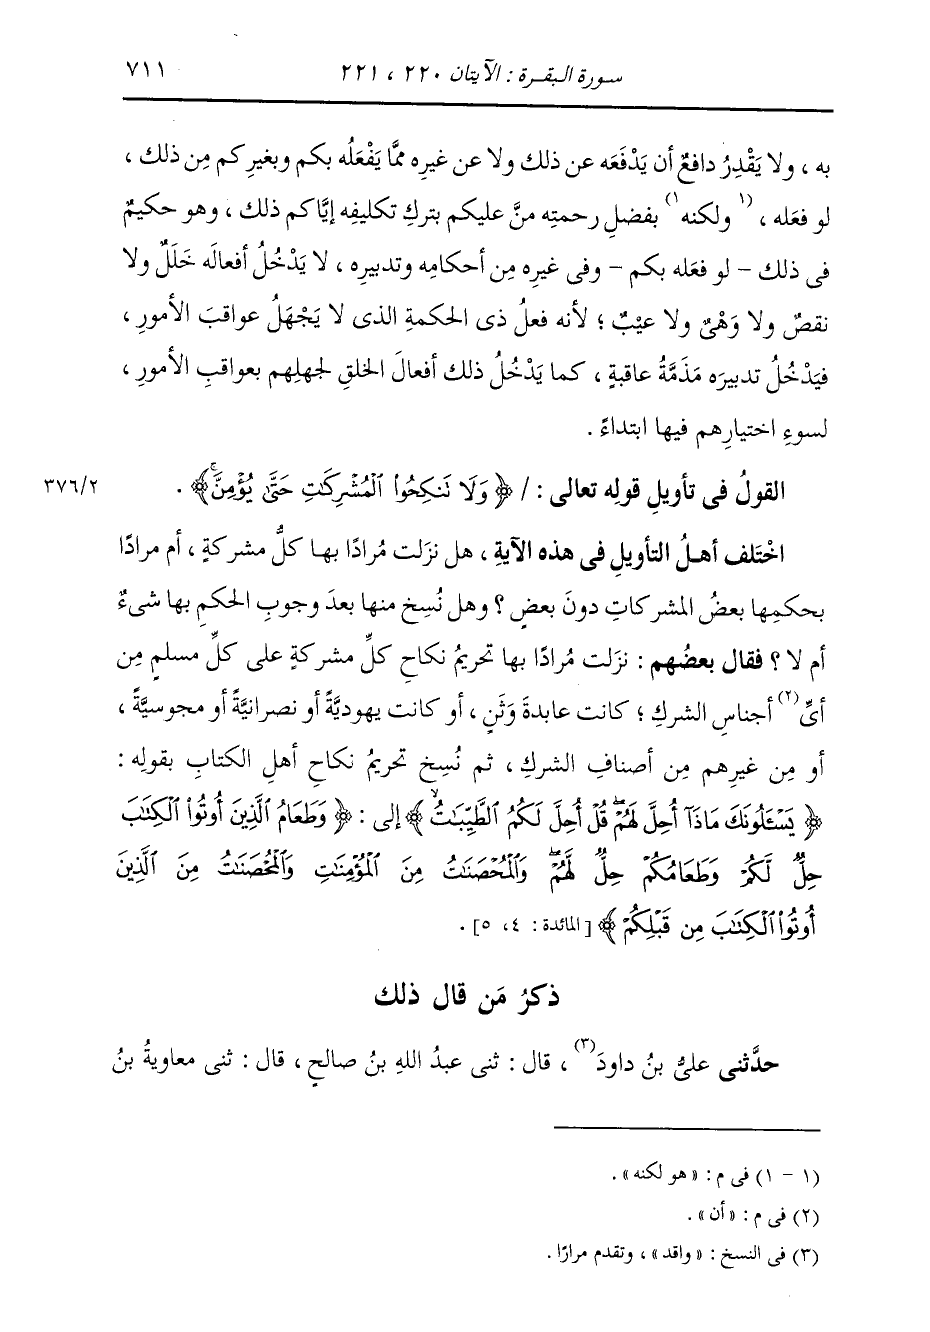 سورة البقرة : الآيتان ٢٢٠ ، ٢٢١
٧١١
به ، ولا يَقْدِرُ دافعٌ أن يَدْفَعَه عن ذلك ولا عن غيرِه ممَّا يَفْعَلُه بكم وبغيرِكم مِن ذلك ،
لو فعَله ، (١ ولكنه ١) بفضلِ رحمتِه منَّ عليكم بتركِ تكليفِه إيَّاكم ذلك ، وهو حكيمٌ
فى ذلك - لو فعَله بكم - وفى غيرِه مِن أحكامِه وتدبيرِه ، لا يَدْخُلُ أفعالَه خَلَلٌ ولا
نقصٌ ولا وَهْىٌ ولا عيْبٌ ؛ لأنه فعلُ ذى الحكمةِ الذى لا يَجْهَلُ عواقبَ الأمورِ ،
فيَدْخُلُ تدبيرَه مَذَمَّةُ عاقبةٍ ، كما يَدْخُلُ ذلك أفعالَ الخلقِ لجهلِهم بعواقبِ الأمورِ ،
لسوءِ اختيارِهم فيها ابتداءً .
القولُ فى تأويلِ قولِه تعالى : / ﴿ وَلَا نَنكِحُوا۟ ٱلْمُشْرِكَٰتِ حَتَّىٰ يُؤْمِنَّ ۚ﴾ .
٣٧٦/٢
اخْتَلف أهلُ التأويلِ فى هذه الآيةِ ، هل نزَلت مُرادًا بها كلُّ مشركةٍ ، أم مرادًا
بحكمِها بعضُ المشركاتِ دونَ بعضٍ ؟ وهل نُسِخ منها بعدَ وجوبِ الحكمِ بها شىءٌ
أم لا ؟ فقال بعضُهم : نزَلت مُرادًا بها تحريمُ نكاحِ كلِّ مشركةٍ على كلِّ مسلمٍ مِن
أىِّ (٢) أجناسِ الشركِ ؛ كانت عابدةَ وَثَنٍ ، أو كانت يهوديَّةً أو نصرانيَّةً أو مجوسيَّةً ،
أو مِن غيرِهم مِن أصنافِ الشركِ ، ثم نُسِخ تحريمُ نكاحِ أهلِ الكتابِ بقولِه :
﴿ يَسْـَٔلُونَكَ مَاذَآ أُحِلَّ لَهُمْ ۖ قُلْ أُحِلَّ لَكُمُ ٱلطَّيِّبَٰتُ ۙ﴾ إلى : ﴿ وَطَعَامُ ٱلَّذِينَ أُوتُوا۟ ٱلْكِتَٰبَ
حِلٌّ لَّكُمْ وَطَعَامُكُمْ حِلٌّ لَّهُمْ ۖ وَٱلْمُحْصَنَٰتُ مِنَ ٱلْمُؤْمِنَٰتِ وَٱلْمُحْصَنَٰتُ مِنَ ٱلَّذِينَ
أُوتُوا۟ ٱلْكِتَٰبَ مِن قَبْلِكُمْ ﴾ [ المائدة : ٤ ، ٥] .
ذكرُ مَن قال ذلك
حدَّثنى علىُّ بنُ داودَ (٣) ، قال : ثنى عبدُ اللهِ بنُ صالحٍ ، قال : ثنى معاويةُ بنُ
(١ - ١) فى م : « هو لكنه » .
(٢) فى م : « أن » .
(٣) فى النسخ : « واقد » ، وتقدم مرارًا .